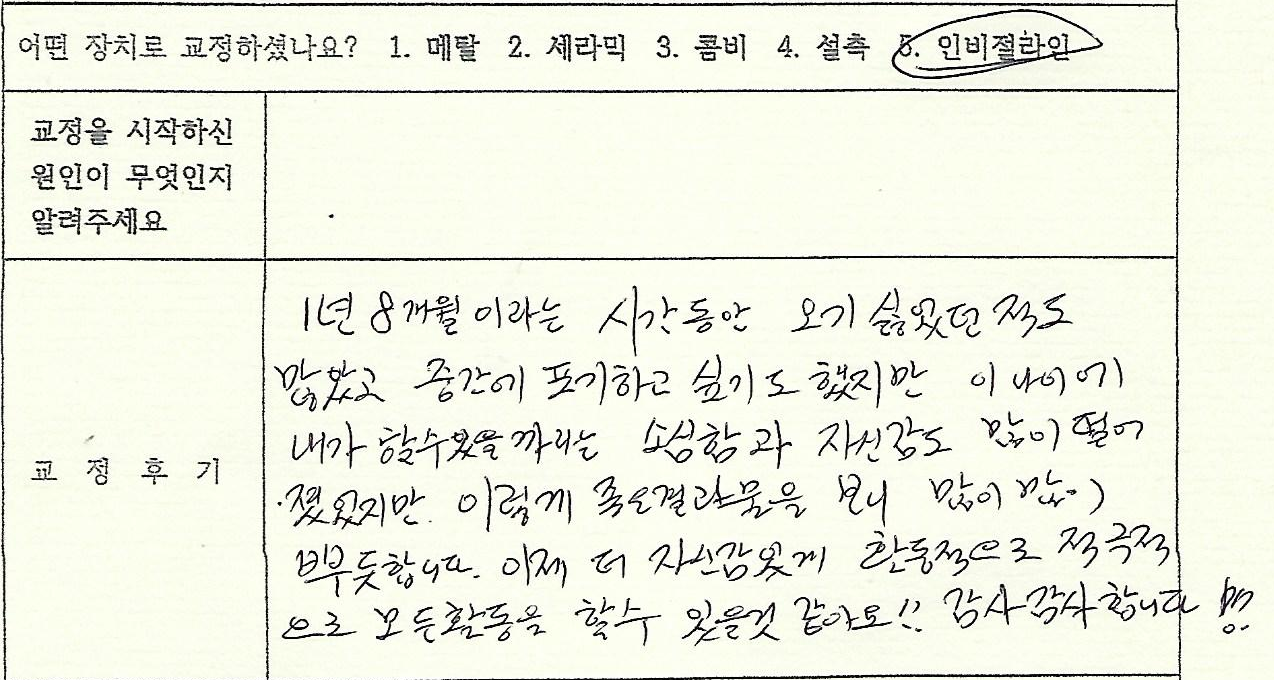 어떤 장치로 교정하셨나요? 1. 메탈 2. 세라믹 3. 콤비 4. 설측 5. 인비절라인
교정을 시작하신
원인이 무엇인지
알려주세요
교 정 후 기
1년 8개월 이라는 시간동안 오기 싫었던 적도
많았고 중간에 포기하고 싶기도 했지만 이 나이에
내가 할수있을까라는 소심함과 자신감도 많이 떨어
졌었지만 이렇게 좋은결과물을 보니 많이 많이
뿌듯합니다. 이제 더 자신감있게 활동적으로 적극적
으로 모든활동을 할수 있을것 같아요!! 감사감사합니다